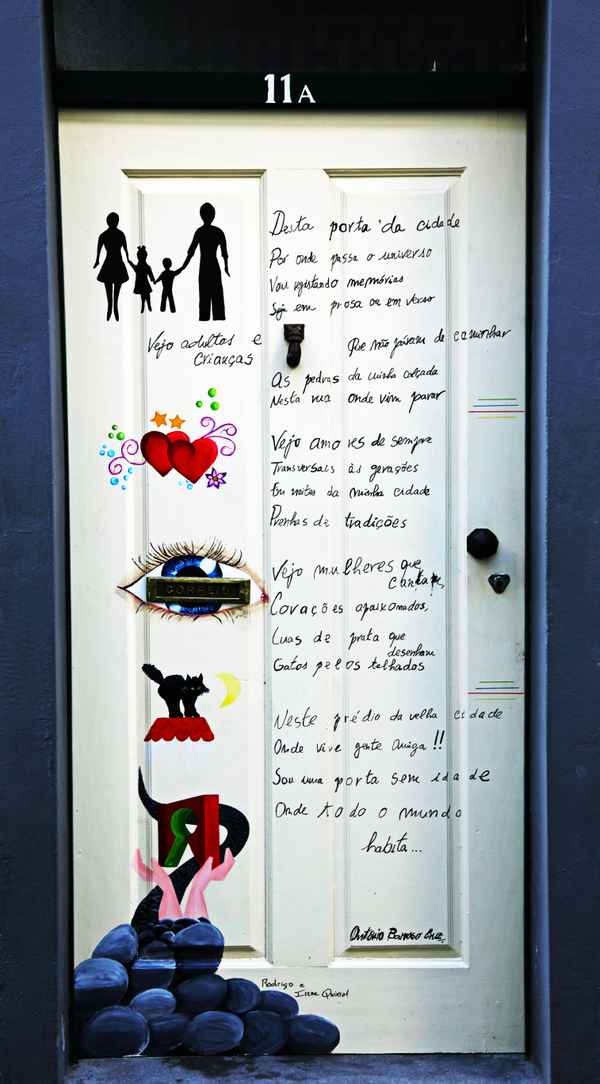 11A
Desta porta da cidade
Por onde passa o universo
Vou registando memórias
Seja em prosa ou em verso
Vejo adultos e
crianças
Que não param de caminhar
As pedras da minha calçada
Nesta rua onde vim parar
Vejo amores de sempre
Transversais às gerações
Em noites da minha cidade
Prenhas de tradições
CORREIO
Vejo mulheres que
cantam,
Corações apaixonados,
Luas de prata que
desenham
Gatos pelos telhados
Neste prédio da velha cidade
Onde vive gente amiga!!
Sou uma porta sem idade
Onde todo o mundo
habita...
António Barroso Cruz
Rodrigo e